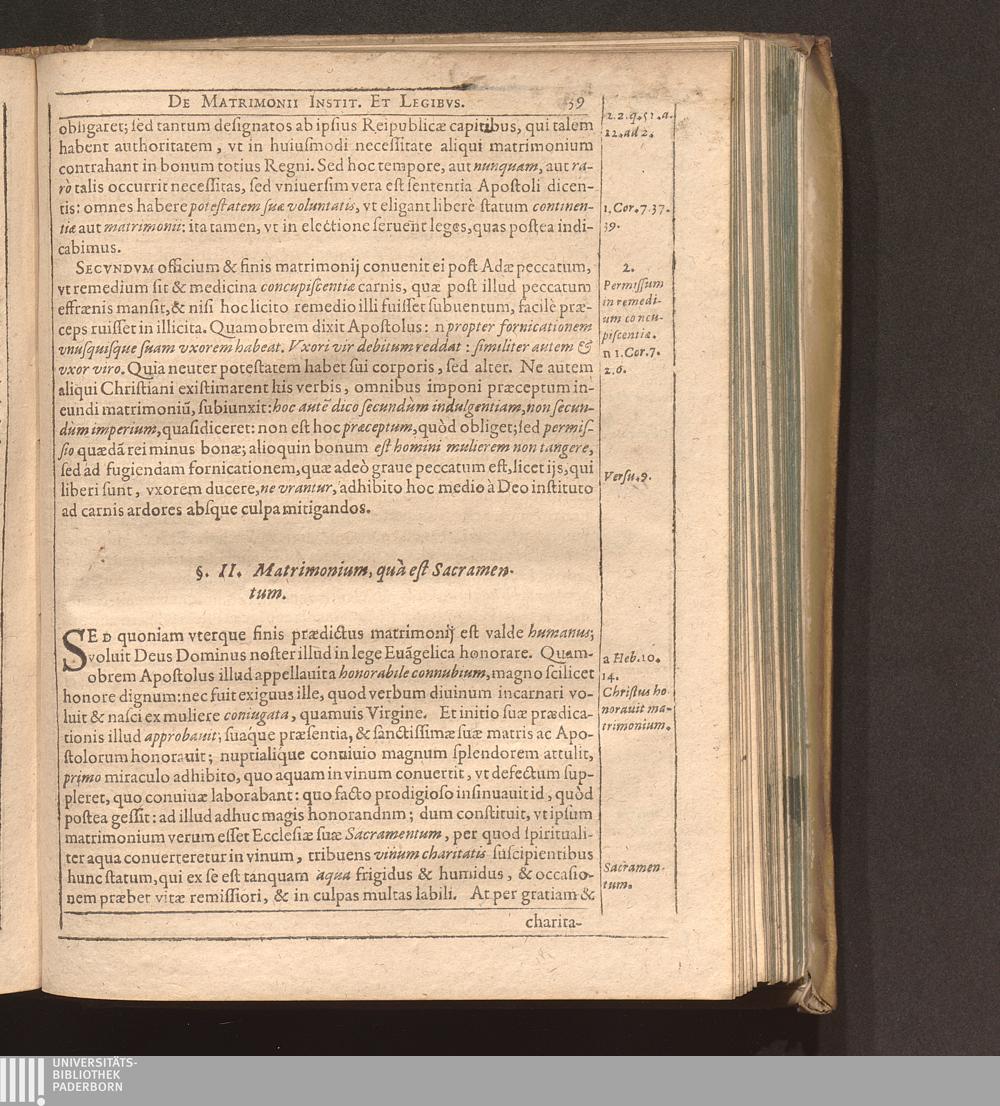 DE MATRIMONII INSTIT. ET LEGIBVS. 59
obligaret; sed tantum designatos ab ipsius Reipublicæ capitibus, qui talem
habent authoritatem, vt in huiusmodi necessitate aliqui matrimonium
contrahant in bonum totius Regni. Sed hoc tempore, aut nunquam, aut ra-
rò talis occurrit necessitas, sed vniuersim vera est sententia Apostoli dicen-
tis: omnes habere potestatem suæ voluntatis, vt eligant liberè statum continen-
tiæ aut matrimonii: ita tamen, vt in electione seruent leges, quas postea indi-
cabimus.
SECVNDVM officium & finis matrimonij conuenit ei post Adæ peccatum,
vt remedium sit & medicina concupiscentiæ carnis, quæ post illud peccatum
effrænis mansit, & nisi hoc licito remedio illi fuisset subuentum, facilè præ-
ceps ruisset in illicita. Quamobrem dixit Apostolus: n propter fornicationem
vnusquisque suam vxorem habeat. Vxori vir debitum reddat: similiter autem &
vxor viro. Quia neuter potestatem habet sui corporis, sed alter. Ne autem
aliqui Christiani existimarent his verbis, omnibus imponi præceptum in-
eundi matrimoniũ, subiunxit: hoc autẽ dico secundùm indulgentiam, non secun-
dùm imperium, quasi diceret: non est hoc præceptum, quòd obliget; sed permis-
sio quædã rei minus bonæ; alioquin bonum est homini mulierem non tangere,
sed ad fugiendam fornicationem, quæ adeò graue peccatum est, licet ijs, qui
liberi sunt, vxorem ducere, ne vrantur, adhibito hoc medio à Deo instituto
ad carnis ardores absque culpa mitigandos.
§. II. Matrimonium, quà est Sacramen-
tum.
SED quoniam vterque finis prædictus matrimonij est valde humanus;
voluit Deus Dominus noster illud in lege Euãgelica honorare. Quam-
obrem Apostolus illud appellauit a honorabile connubium, magno scilicet
honore dignum: nec fuit exiguus ille, quod verbum diuinum incarnari vo-
luit & nasci ex muliere coniugata, quamuis Virgine. Et initio suæ prædica-
tionis illud approbauit; suaque præsentia, & sanctissimæ suæ matris ac Apo-
stolorum honorauit; nuptialique conuiuio magnum splendorem attulit,
primo miraculo adhibito, quo aquam in vinum conuertit, vt defectum sup-
pleret, quo conuiuæ laborabant: quo facto prodigioso insinuauit id, quòd
postea gessit: ad illud adhuc magis honorandnm; dum constituit, vt ipsum
matrimonium verum esset Ecclesiæ suæ Sacramentum, per quod spirituali-
ter aqua conuerteretur in vinum, tribuens vinum charitatis suscipientibus
hunc statum, qui ex se est tanquam aqua frigidus & humidus, & occasio-
nem præbet vitæ remissiori, & in culpas multas labili. At per gratiam &
charita-
2. 2. q. 51. a.
12. ad 2.
1. Cor. 7. 37.
39.
2.
Permissum
in remedi-
um concu-
piscentiæ.
n 1. Cor. 7.
2. 6.
Versu. 9.
a Heb. 10.
14.
Christus ho-
norauit ma-
trimonium.
Sacramen-
tum.
UNIVERSITÄTS-
BIBLIOTHEK
PADERBORN